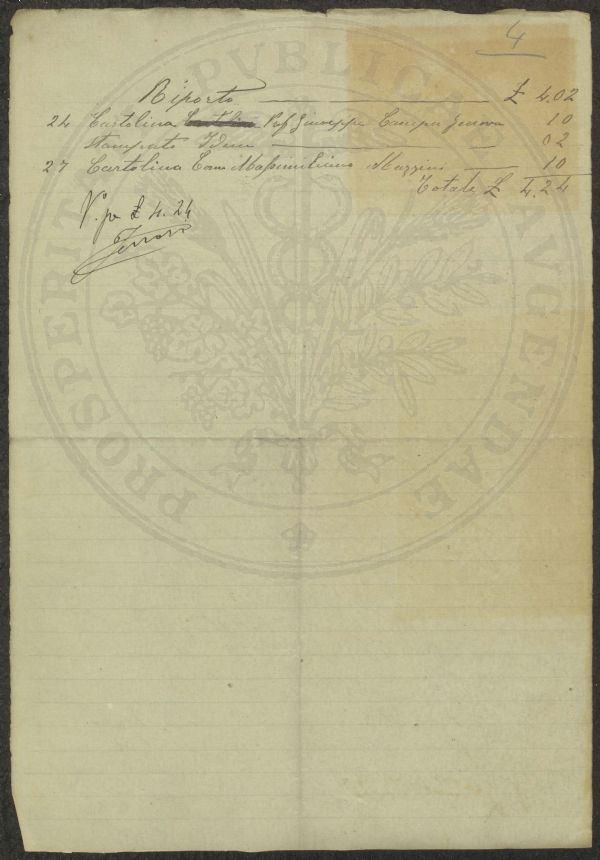 4
Riporto £ 4.02
24 Cartolina Prof Giuseppe Campi Genova 10
Stampato Idem 02
27 Cartolina Massimiliano Mazzini 10
Totale £ 4.24
V.° per £ 4.24
Ferrari
PROSPERITATI PVBLICAE AVGENDAE